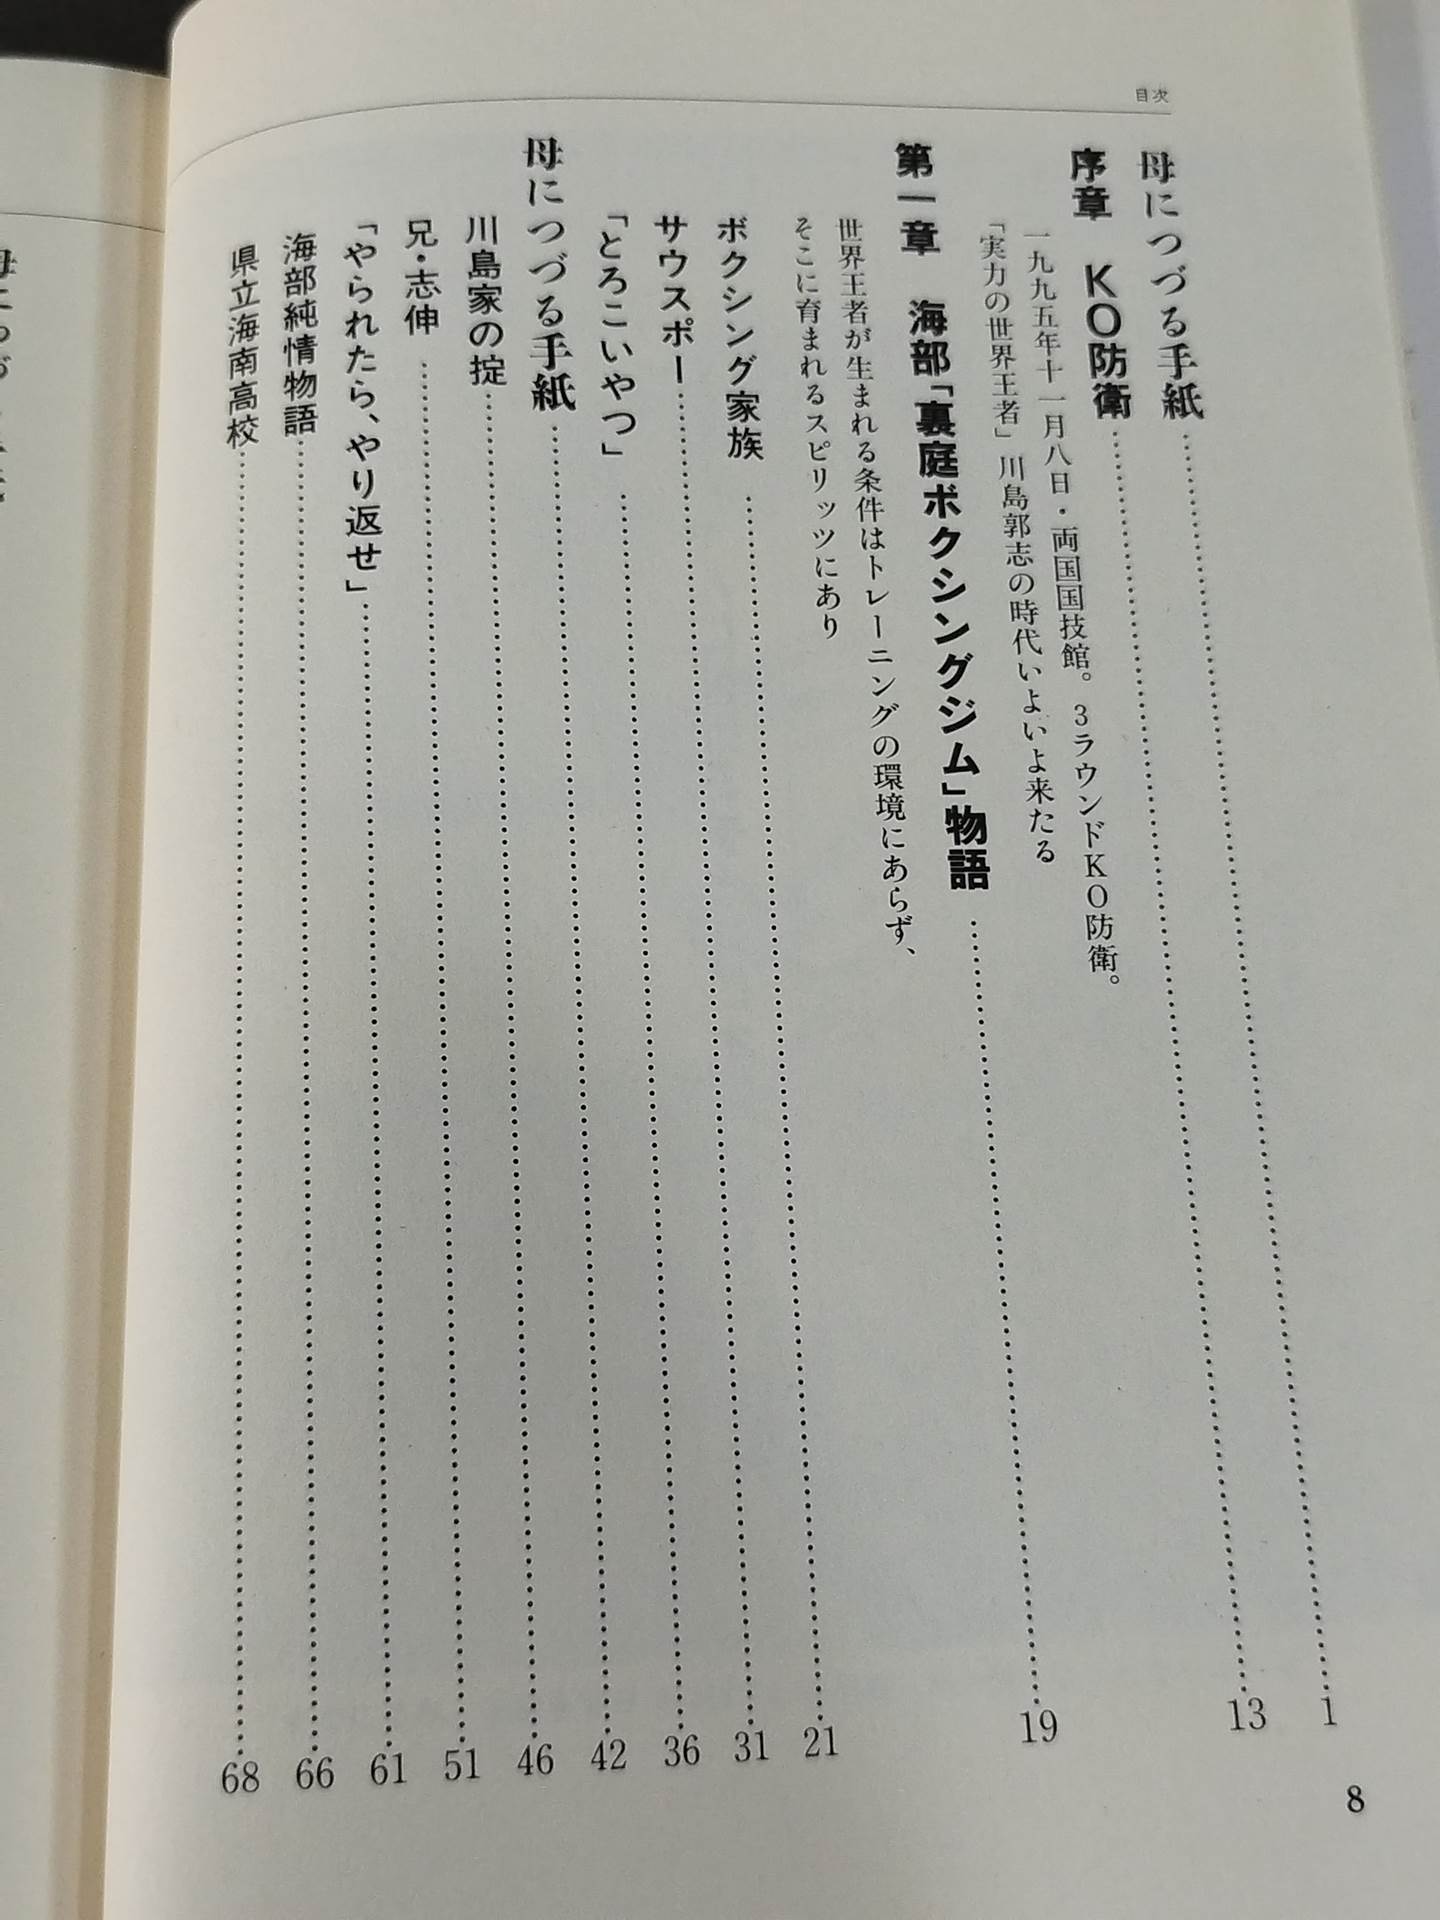 目次
母につづる手紙……1
序章　KO防衛……13
一九九五年十一月八日・両国国技館。3ラウンドKO防衛。
「実力の世界王者」川島郭志の時代いよいよ来たる
第一章　海部「裏庭ボクシングジム」物語……19
世界王者が生まれる条件はトレーニングの環境にあらず、
そこに育まれるスピリッツにあり
ボクシング家族……21
サウスポー……31
「とろこいやつ」……36
母につづる手紙……42
川島家の掟……46
兄・志伸……51
「やられたら、やり返せ」……61
海部純情物語……66
県立海南高校……68
8